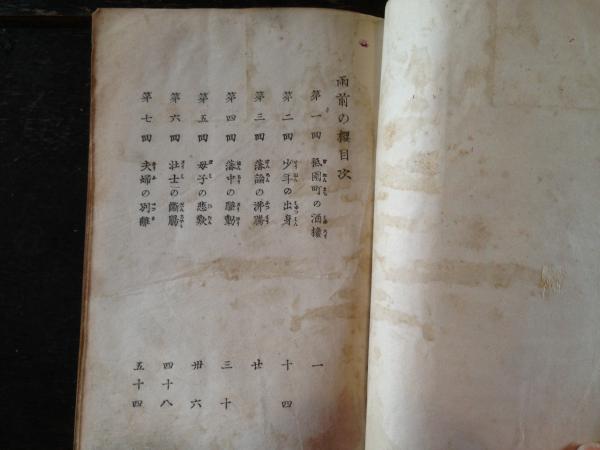 雨前の櫻目次
第一回 祇園町の酒樓 一
第二回 少斗の出身 十四
第三回 藩論の沸騰 廿
第四回 藩中の騒動 三十
第五回 母子の悲歎 卅六
第六回 壮士の断腸 四十八
第七回 夫婦の別離 五十四